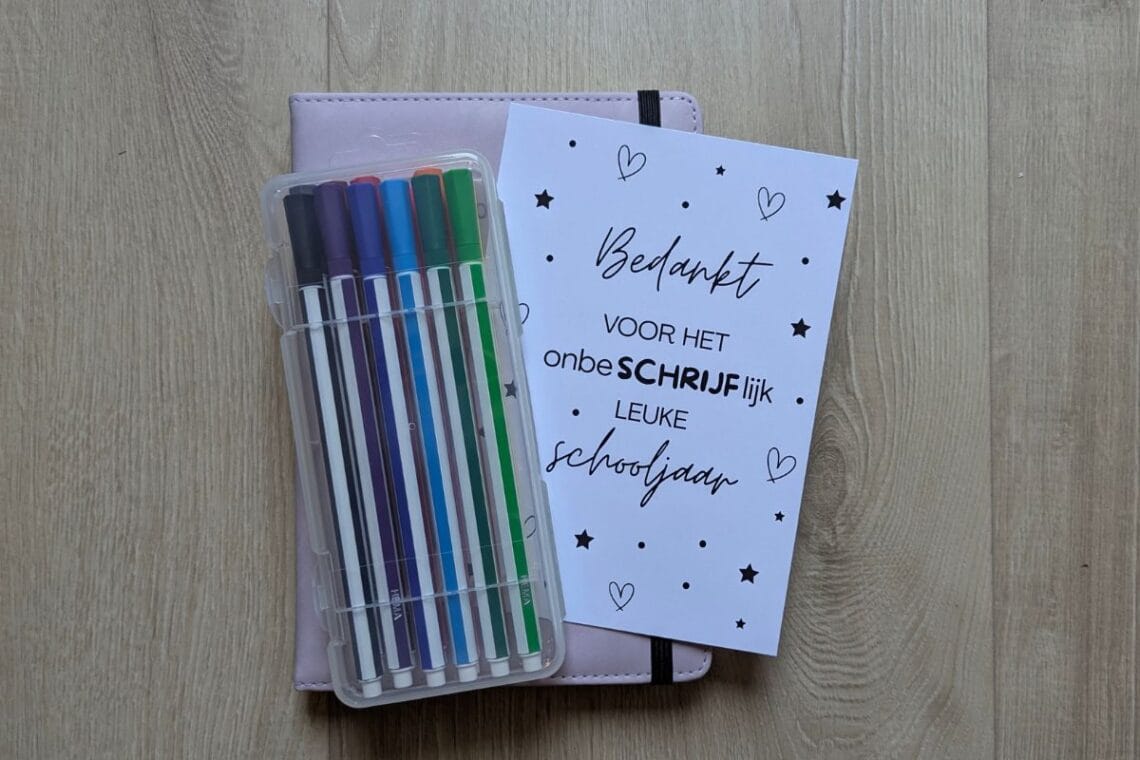 Bedankt
VOOR HET
onbeSCHRIJFlijk
LEUKE
schooljaar
HEMA
HEMA